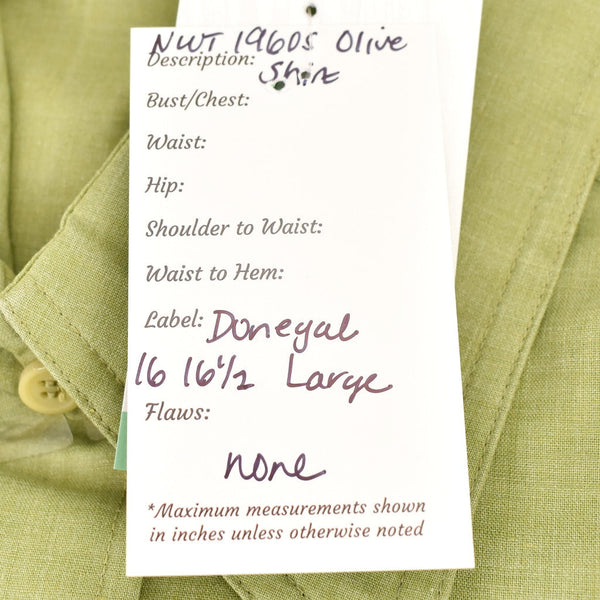 NWT 1960s Olive
Description:
Shirt
Bust/Chest:
Waist:
Hip:
Shoulder to Waist:
Waist to Hem:
Label: Donegal
16 16½ Large
Flaws:
none
*Maximum measurements shown
in inches unless otherwise noted